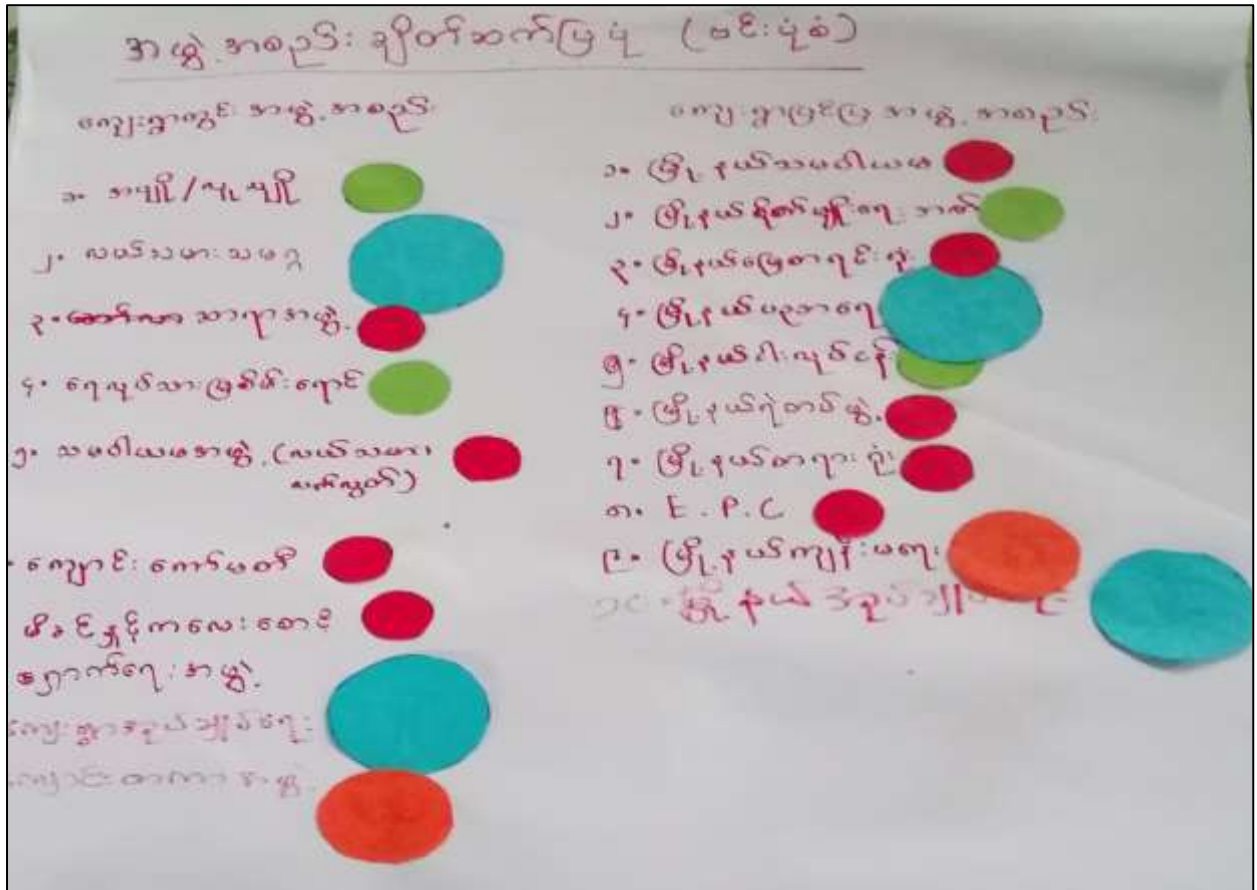 အဖွဲ့အစည်း ချိတ်ဆက်ပြပုံ (ဗင်းပုံစံ)
ကျေးရွာတွင်း အဖွဲ့အစည်း
၁။ အပျို/လူပျို
၂။ လယ်သမားသမဂ္ဂ
၃။ သာရေးအဖွဲ့
၄။ ရေလုပ်သား
၅။ သမဝါယမအဖွဲ့ (လယ်သမား၊
လက်လွတ်)
ကျောင်းကော်မတီ
မိခင်နှင့်ကလေးစောင့်
ရှောက်ရေးအဖွဲ့
ကျေးရွာအုပ်ချုပ်ရေး
အဖွဲ့
ကျေးရွာပြင်ပြ အဖွဲ့အစည်း
၁။ မြို့နယ်သမဝါယမ
၂။ မြို့နယ်
၃။ မြို့နယ်မြေစာရင်း
၄။ မြို့နယ်ပညာရေး
၅။ မြို့နယ်ငါးလုပ်ငန်း
၆။ မြို့နယ်ရဲတပ်ဖွဲ့
၇။ မြို့နယ်တရားရုံး
၈။ E.P.C
၉။ မြို့နယ်ကျန်းမာရေး
၁၀။ မြို့နယ်